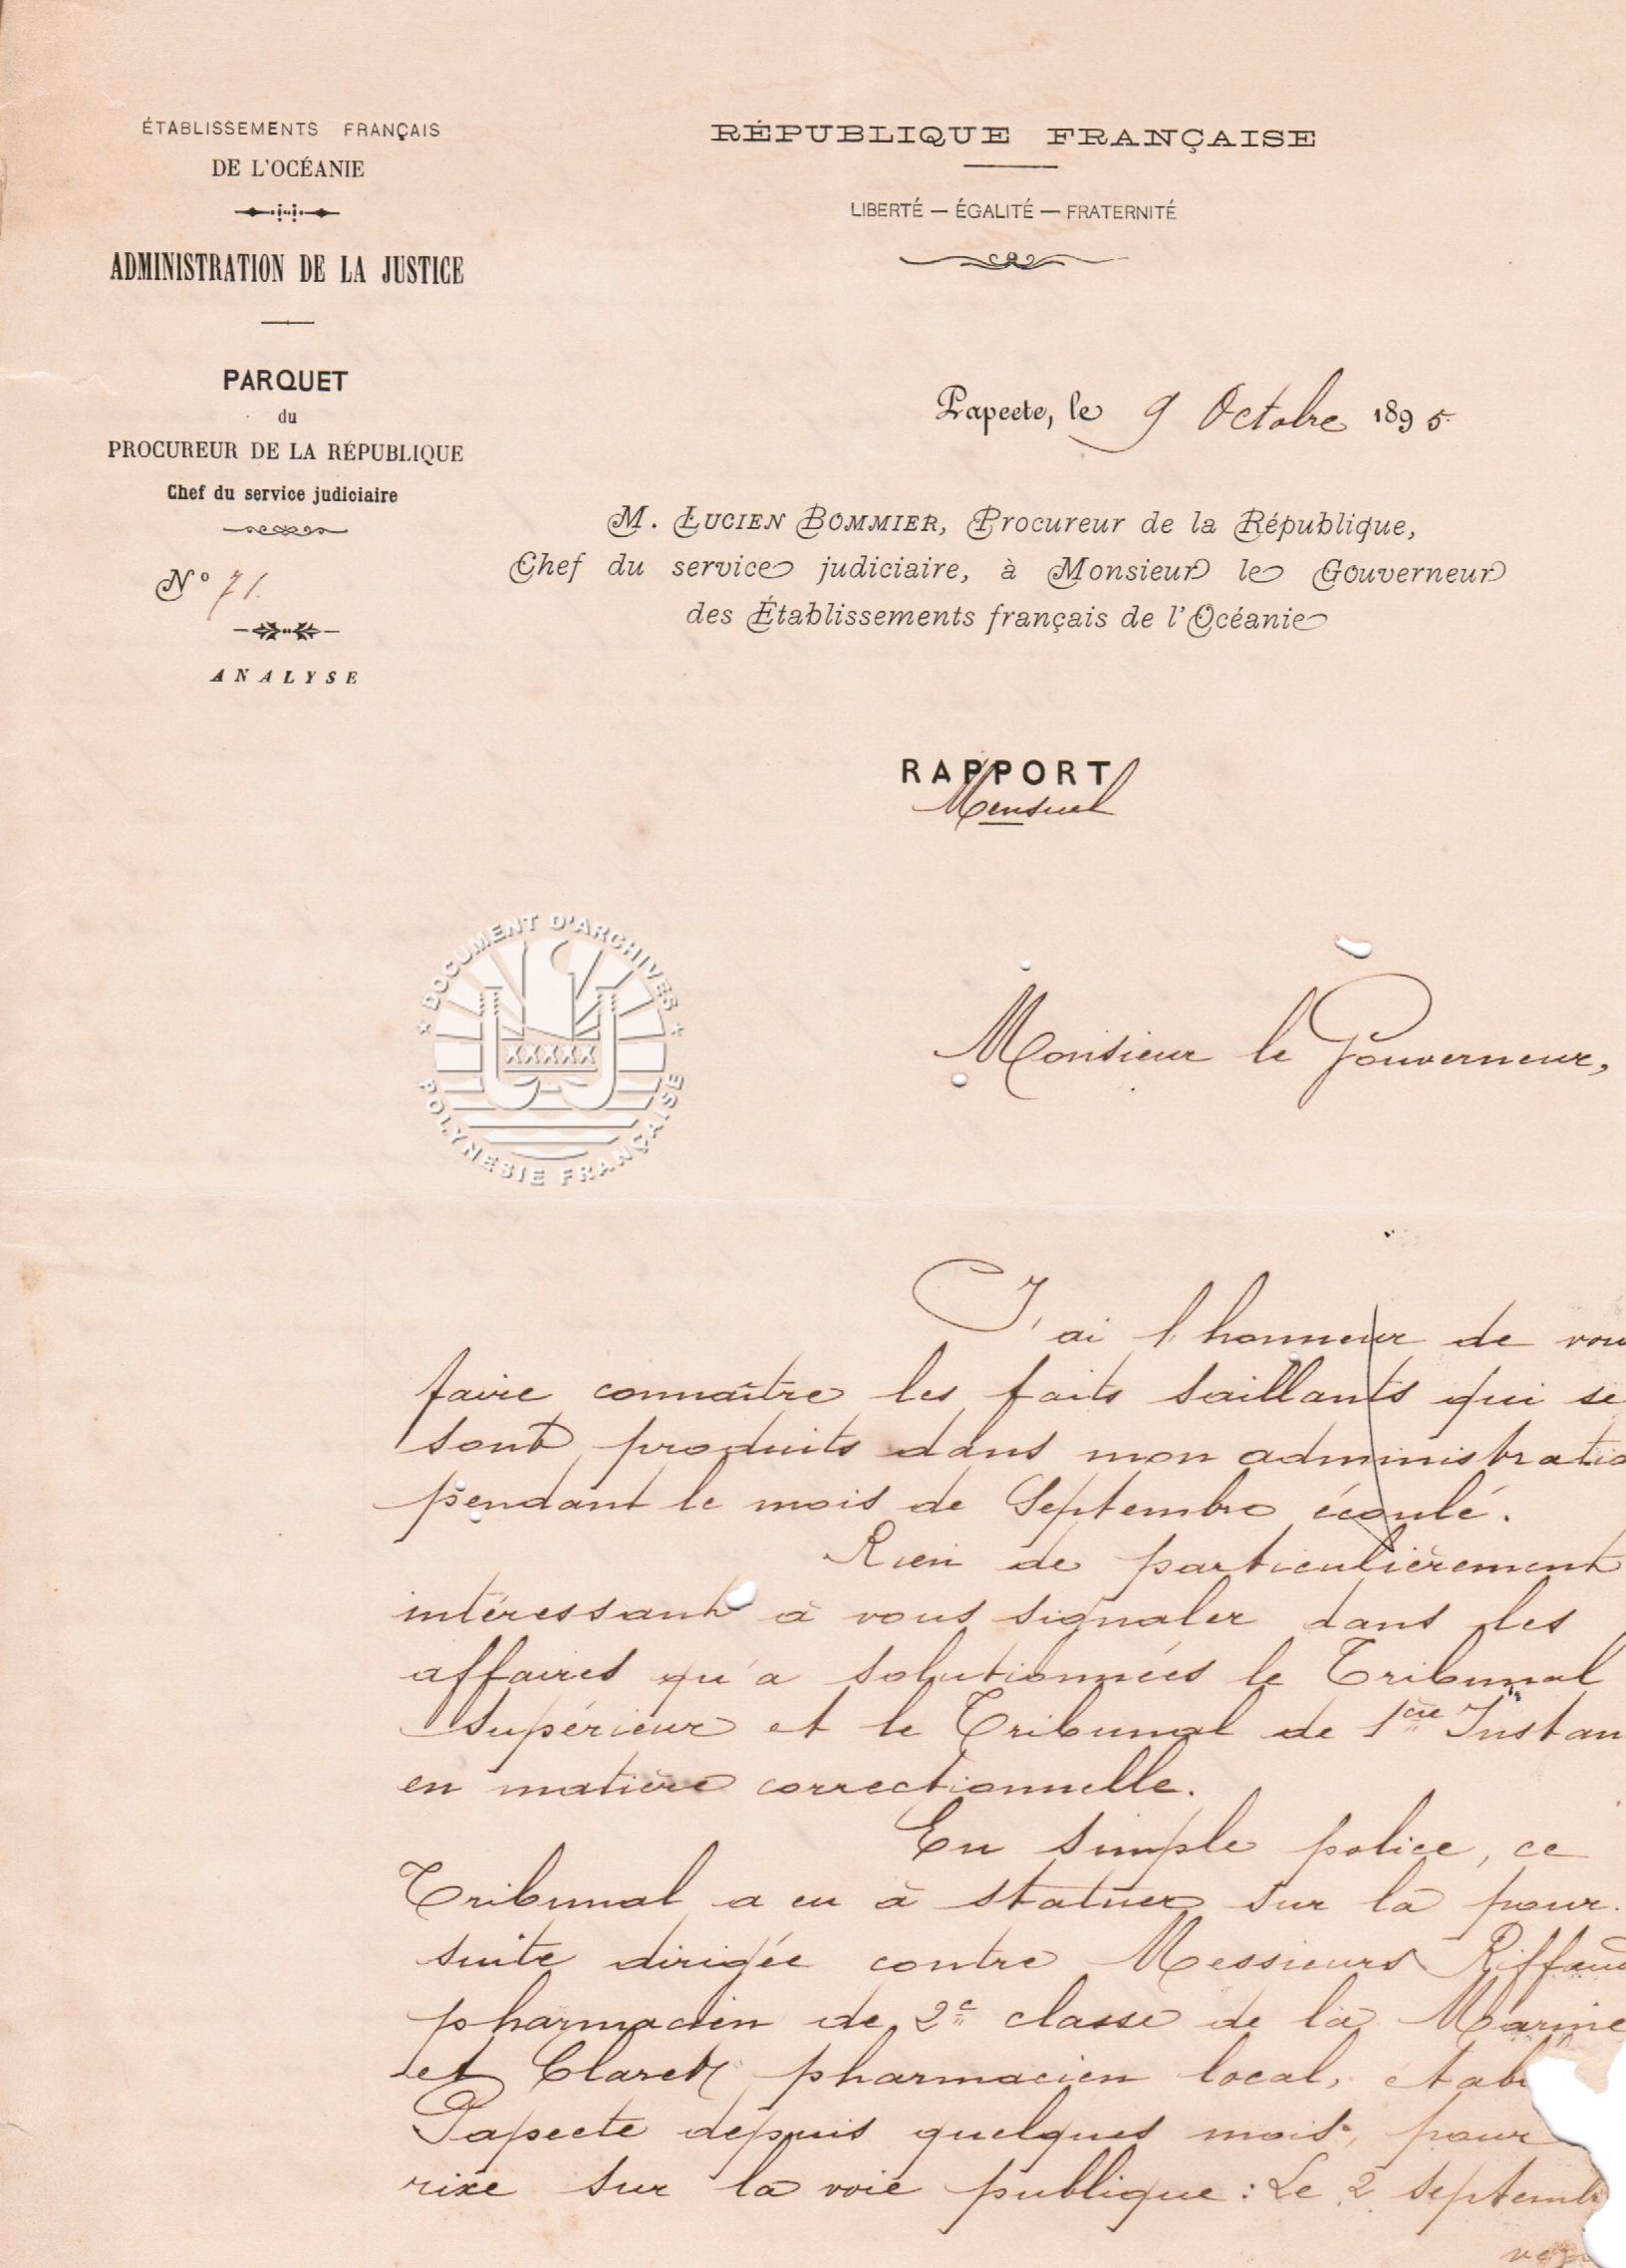 ÉTABLISSEMENTS FRANÇAIS
DE L'OCÉANIE
ADMINISTRATION DE LA JUSTICE
PARQUET
du
PROCUREUR DE LA RÉPUBLIQUE
Chef du service judiciaire
N° 71.
ANALYSE
RÉPUBLIQUE FRANÇAISE
LIBERTÉ — ÉGALITÉ — FRATERNITÉ
Papeete, le 9 Octobre 1895.
M. LUCIEN BOMMIER, Procureur de la République,
Chef du service judiciaire, à Monsieur le Gouverneur
des Établissements français de l'Océanie
RAPPORT
Mensuel
DOCUMENT D'ARCHIVES
POLYNESIE FRANÇAISE
Monsieur le Gouverneur,
J'ai l'honneur de vou
faire connaître les faits saillants qui se
sont produits dans mon administratio
pendant le mois de Septembre écoulé.
Rien de particulièrement
intéressant à vous signaler dans les
affaires qu'a solutionnées le Tribunal
Supérieur et le Tribunal de 1ère Instan
en matière correctionnelle.
En simple police, ce
Tribunal a eu à statuer sur la pour-
suite dirigée contre Messieurs Riffaud
pharmacien de 2e classe de la Marine
et Claret pharmacien local, etab
Papeete depuis quelques mois, pour
rixe sur la voie publique : Le 2 septemb